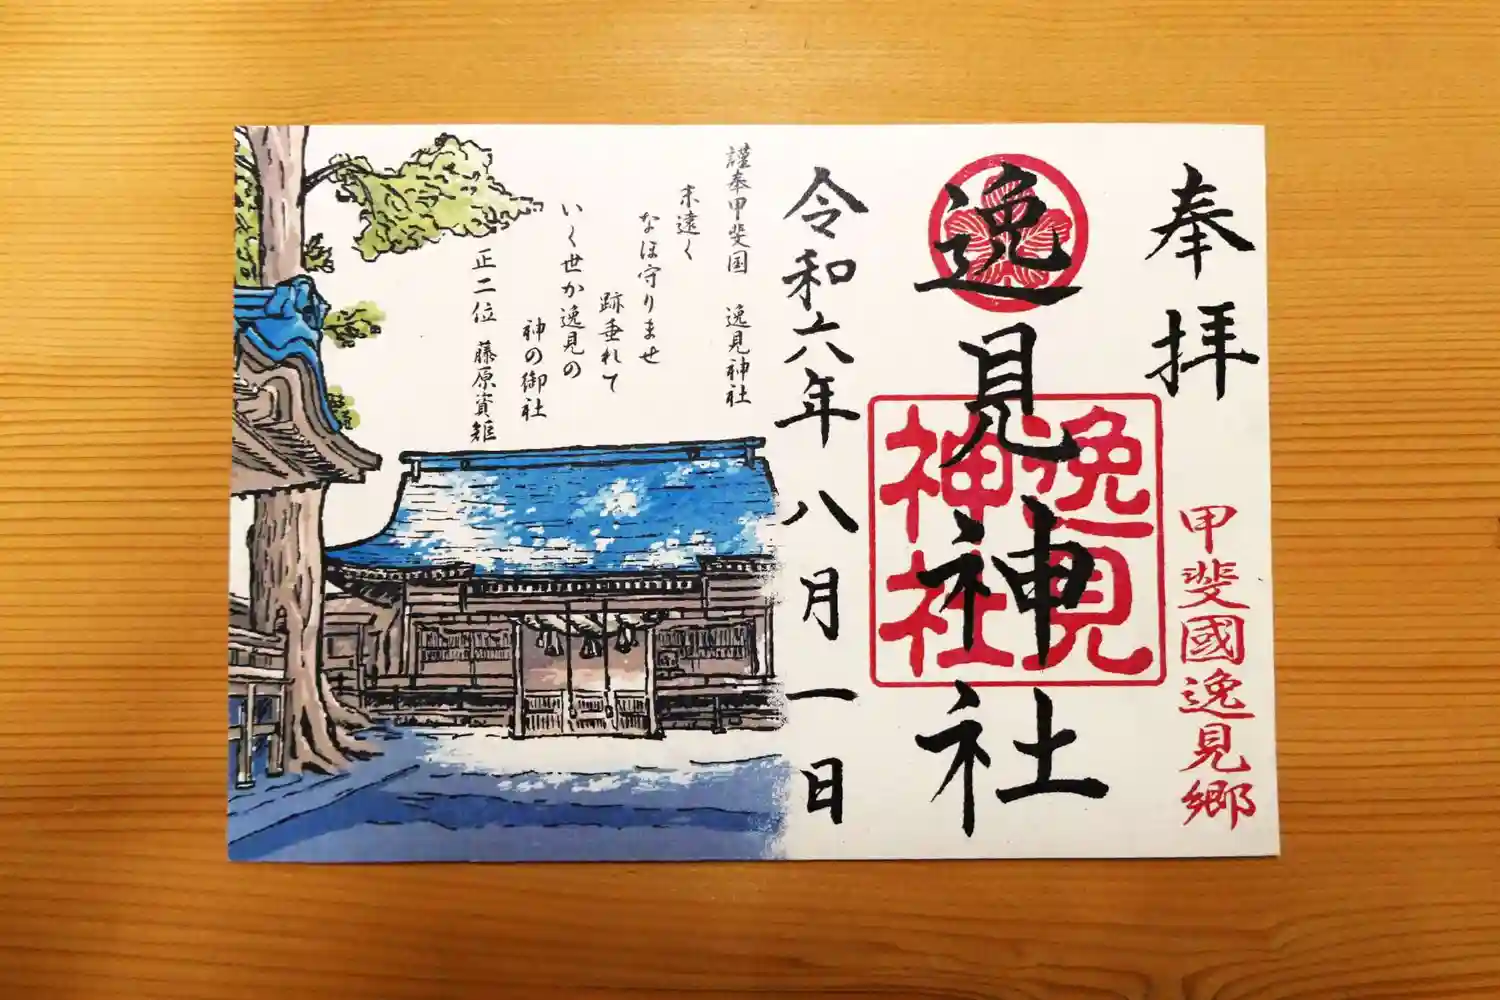 奉拝
甲斐國逸見郷
逸見神社
逸見
神社
令和六年八月一日
謹奉甲斐国 逸見神社
末遠く
なほ守りませ
跡垂れて
いく世か逸見の
神の御社
正二位 藤原資矩